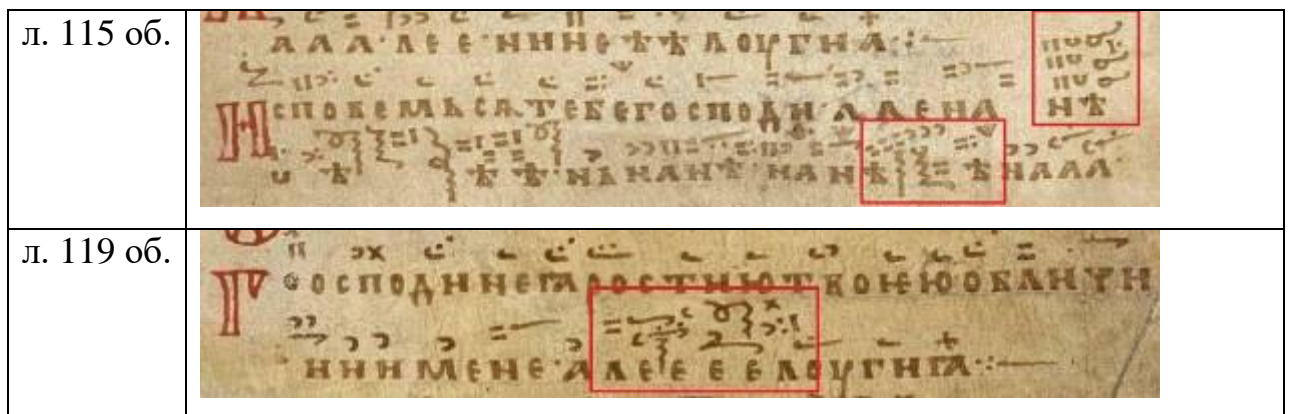 л. 115 об.
ААА·ЛЕЕ·НННЕѢѢЛОУГНА⁘—
ИСПОВЕМЬСѦТЕБЕГОСПОДИ·АЛЕНА НѢ
Ѣ ѢѢ·НѢНАНѢ·НАНѢ ѢНААА·
л. 119 об.
ГОСПОДИНЕꙖРОСТИЮТВОЕЮОБЛИЧИ
НИИМЕНЕ·АЛЕЕЕЕЛОУГИꙖ⁘—